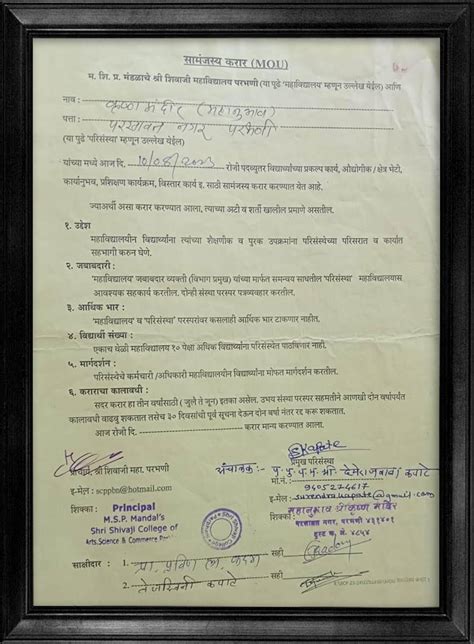 सामंजस्य करार (MOU)
म. शि. प्र. मंडळाचे श्री शिवाजी महाविद्यालय परभणी (या पुढे 'महाविद्यालय' म्हणून उल्लेख येईल) आणि
नाव : कृष्ण मंदीर (महानुभाव)
पत्ता : परसावत नगर परभणी
(या पुढे 'परिसंस्था' म्हणून उल्लेख येईल)
यांच्या मध्ये आज दि. 10/08/2023 रोजी पदव्युत्तर विद्यार्थ्यांच्या प्रकल्प कार्य, औद्योगीक / क्षेत्र भेटी,
कार्यानुभव, प्रशिक्षण कार्यक्रम, विस्तार कार्य इ. साठी सामंजस्य करार करण्यात येत आहे.
ज्याअर्थी असा करार करण्यात आला, त्याच्या अटी व शर्ती खालील प्रमाणे असतील.
१. उद्देश
महाविद्यालयीन विद्यार्थ्यांना त्यांच्या शैक्षणीक व पुरक उपक्रमांना परिसंस्थेच्या परिसरात व कार्यात
सहभागी करुन घेणे.
२. जबाबदारी :
'महाविद्यालय' जबाबदार व्यक्ती (विभाग प्रमुख) यांच्या मार्फत समन्वय साधतील 'परिसंस्था' महाविद्यालयास
आवश्यक सहकार्य करतील. दोन्ही संस्था परस्पर पत्रव्यवहार करतील.
३. आर्थिक भार :
'महाविद्यालय' व 'परिसंस्था' परस्परांवर कसलाही आर्थिक भार टाकणार नाहीत.
४. विद्यार्थी संख्या :
एकाच वेळी महाविद्यालय १० पेक्षा अधिक विद्यार्थ्यांना परिसंस्थेत पाठविणार नाही.
५. मार्गदर्शन :
परिसंस्थेचे कर्मचारी /अधिकारी महाविद्यालयीन विद्यार्थ्यांना मोफत मार्गदर्शन करतील.
६. कराराचा कालावधी :
सदर करार हा तीन वर्षासाठी ( जुलै ते जून) इतका असेल. उभय संस्था परस्पर सहमतीने आणखी दोन वर्षापर्यंत
कालावधी वाढवु शकतात तसेच ३० दिवसांची पूर्व सूचना देऊन दोन वर्षा नंतर रद्द करू शकतात.
आज रोजी दि. करार मान्य करण्यात आला.
SKapate
प्राचार्य, श्री शिवाजी महा. परभणी
प्रमुख परिसंस्था
संचालक :- प. पु. प. म. श्री
कपाटे
मो.नं. : 9405274617
e-mail : scppbn@hotmail.com
e-mail : surendrakapate@gmail.com
शिक्का :
Principal
M.S.P. Mandal's
Shri Shivaji College of
Arts, Science & Commerce
शिक्का : महानुभाव श्रीकृष्ण मंदिर
नगर, परभणी ४३१४०१
साक्षीदार : 1. प्रा. प्रविण कदम सही
2. तेजस्विनी कपाटे सही